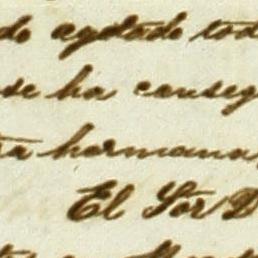 do agotado tod
se ha conseg
ra hermana,
El Sor D